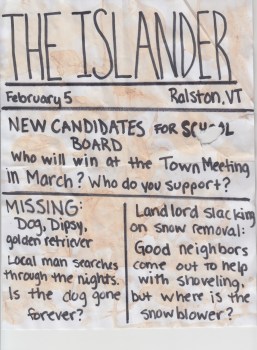 THE ISLANDER
February 5
Ralston, VT
NEW CANDIDATES FOR SCHOOL
BOARD
Who will win at the Town Meeting
in March? Who do you support?
MISSING:
Dog, Dipsy,
golden retriever
Local man searches
through the nights.
Is the dog gone
forever?
Landlord slacking
on snow removal:
Good neighbors
come out to help
with shoveling,
but where is the
snowblower?